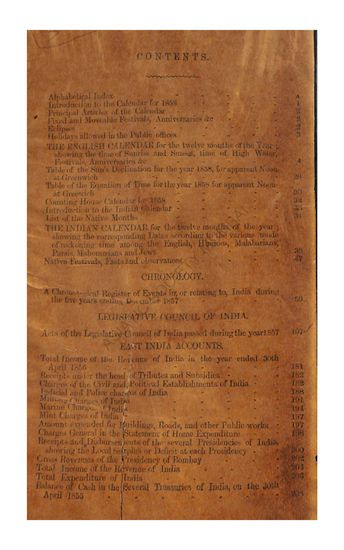 CONTENTS.
Alphabetical Index
Introduction to the Calendar for 1858
Principal Articles of the Calendar
Fixed and Moveable Festivals, Anniversaries &c
Eclipses
Holidays allowed in the Public offices
THE ENGLISH CALENDAR for the twelve months of the Year
showing the time of Sunrise and Sunset, time of High Water,
Festivals, Anniversaries &c 4
Table of the Sun's Declination for the year 1858, for apparent Noon
at Greenwich
Table of the Equation of Time for the year 1858 for apparent Noon
at Greenwich
Counting House Calendar for 1858
Introduction to the Indian Calendar
List of the Native Months
THE INDIAN CALENDAR for the twelve months of the year
showing the corresponding Dates according to the various mode
of reckoning time among the English, Hindoos, Malabarians,
Parsis, Mahomedans and Jews
Native Festivals, Fasts and observances 47
CHRONOLOGY.
A Chronological Register of Events in, or relating to, India during
the five years ending December 1857
LEGISLATIVE COUNCIL OF INDIA.
Acts of the Legislative Council of India passed during the year 1857 107
EAST INDIA ACCOUNTS.
Total Income of the Revenue of India in the year ended 30th
April 1856 181
Receipts under the head of Tributes and Subsidies 182
Charges of the Civil and Political Establishments of India 182
Judicial and Police charges of India 188
Military Charges of India 191
Marine Charges of India 194
Mint Charges of India 197
Amount expended for Buildings, Roads, and other Public works 197
Charges General in the Statement of Home Expenditure 198
Receipts and Disbursements of the several Presidencies of India,
showing the Local surplus or Deficit at each Presidency 200
Gross Revenues of the Presidency of Bombay 202
Total Income of the Revenue of India 204
Total Expenditure of India
Balance of Cash in the Several Treasuries of India, on the 30th
April 1855